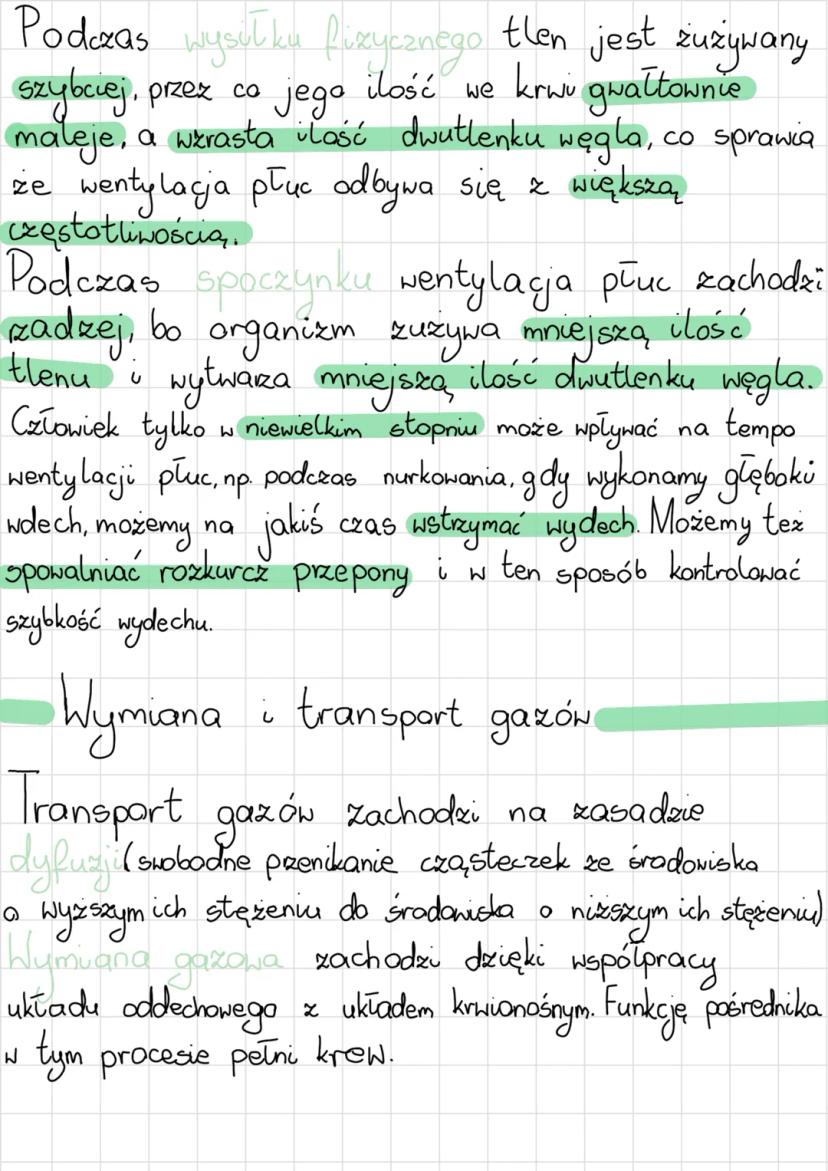 Podczas wysiłku fizycznego tlen jest zużywany
szybciej, przez co jego ilość we krwi gwałtownie
maleje, a wzrasta ilość dwutlenku węgla, co sprawia
że wentylacja płuc odbywa się z większą
częstotliwością.
Podczas spoczynku wentylacja płuc zachodzi
rzadzej, bo organizm zużywa mniejszą ilość
tlenu i wytwarza mniejszą ilość dwutlenku węgla.
Człowiek tylko w niewielkim stopniu może wpływać na tempo
wentylacji płuc, np. podczas nurkowania, gdy wykonamy głęboki
wdech, możemy na jakiś czas wstrzymać wydech. Możemy też
spowalniać rozkurcz przepony i w ten sposób kontrolować
szybkość wydechu.
Wymiana i transport gazów
Transport gazów zachodzi na zasadzie
dyfuzji (swobodne przenikanie cząsteczek ze środowiska
o wyższym ich stężeniu do środowiska o niższym ich stężeniu)
Wymiana gazowa zachodzi dzięki współpracy
układu oddechowego z układem krwionośnym. Funkcję pośrednika
w tym procesie pełni krew.